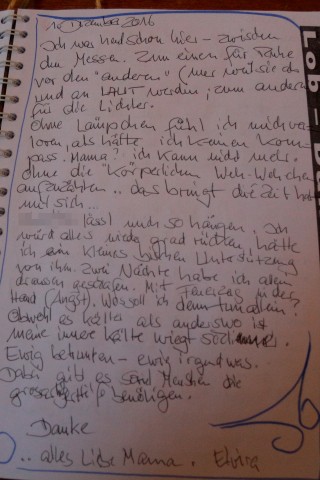 10. Dezember 2016
Ich war heut schon hier – zwischen
den Messen. Zum einen für Ruhe
vor den "anderen" (nur weil sie ab
und an LAUT werden; zum andern
für die Lichter.
Ohne Lämpchen fühl ich mich ver-
loren, als hätte ich keinen Kom-
pass. Mama? ich kann nicht mehr.
Ohne die "körperlichen Weh-Wehchen
aufzuzählen.. das bringt die Zeit halt
mit sich...
lässt mich so hängen. Ich
würd alles wieder grad rücken, hätte
ich ein kleines bischen Unterstützung
von ihm. Zwei Nächte habe ich allein
draussen geschlafen. Mit Feuerzeug in der
Hand (Angst). Was soll ich denn tun allein?
Obwohl es kälter als anderswo ist
meine innere Kälte wiegt
Ewig – ewig irgendwas.
Dabei gibt es so viel Menschen die
benötigen.
Danke
.. alles Liebe Mama.
Lob